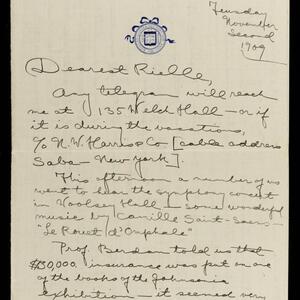 Tuesday
November
Second
1909
Dearest Rielle,
Any telegram will reach
me at 135 Welch Hall - or if
it is during the vacations,
c/o N. W. Harris & Co [cable address
Saba - New York].
This afternoon a number of us
went to hear the symphony concert
in Woolsey Hall - some wonderful
music by Camille Saint-Saens -
"Le Rouet d'Omphale"
Prof. Berdan told us that
$130,000 insurance was put on one
of the books of the Johnsonia
exhibition - it seemed very